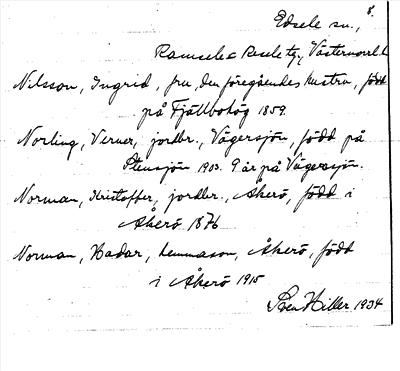 8.
Edsele sn.,
Ramsele & Resele tg., Västernorrl. l.
Nilsson, Ingrid, fru, den föregåendes hustru, född
på Fjällbohög 1859.
Norling, Verner, jordbr., Vågersjön, född på
Stensjön 1903. 9 år på Vågersjön.
Norman, Kristoffer, jordbr., Åkerö, född i
Åkerö 1876
Norman, Hadar, hemmason, Åkerö, född
i Åkerö 1915
Sven Hiller 1934